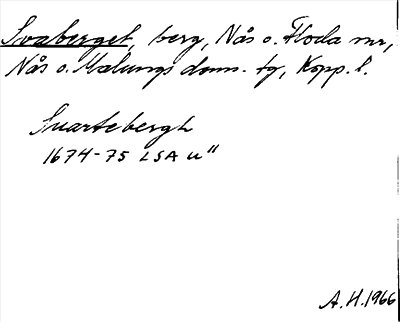 Svaberget, berg, Nås o. Floda snr,
Nås o. Malungs doms. tg, Kopp. l.
Suartebergh
1674-75 LSA u"
A.H. 1966